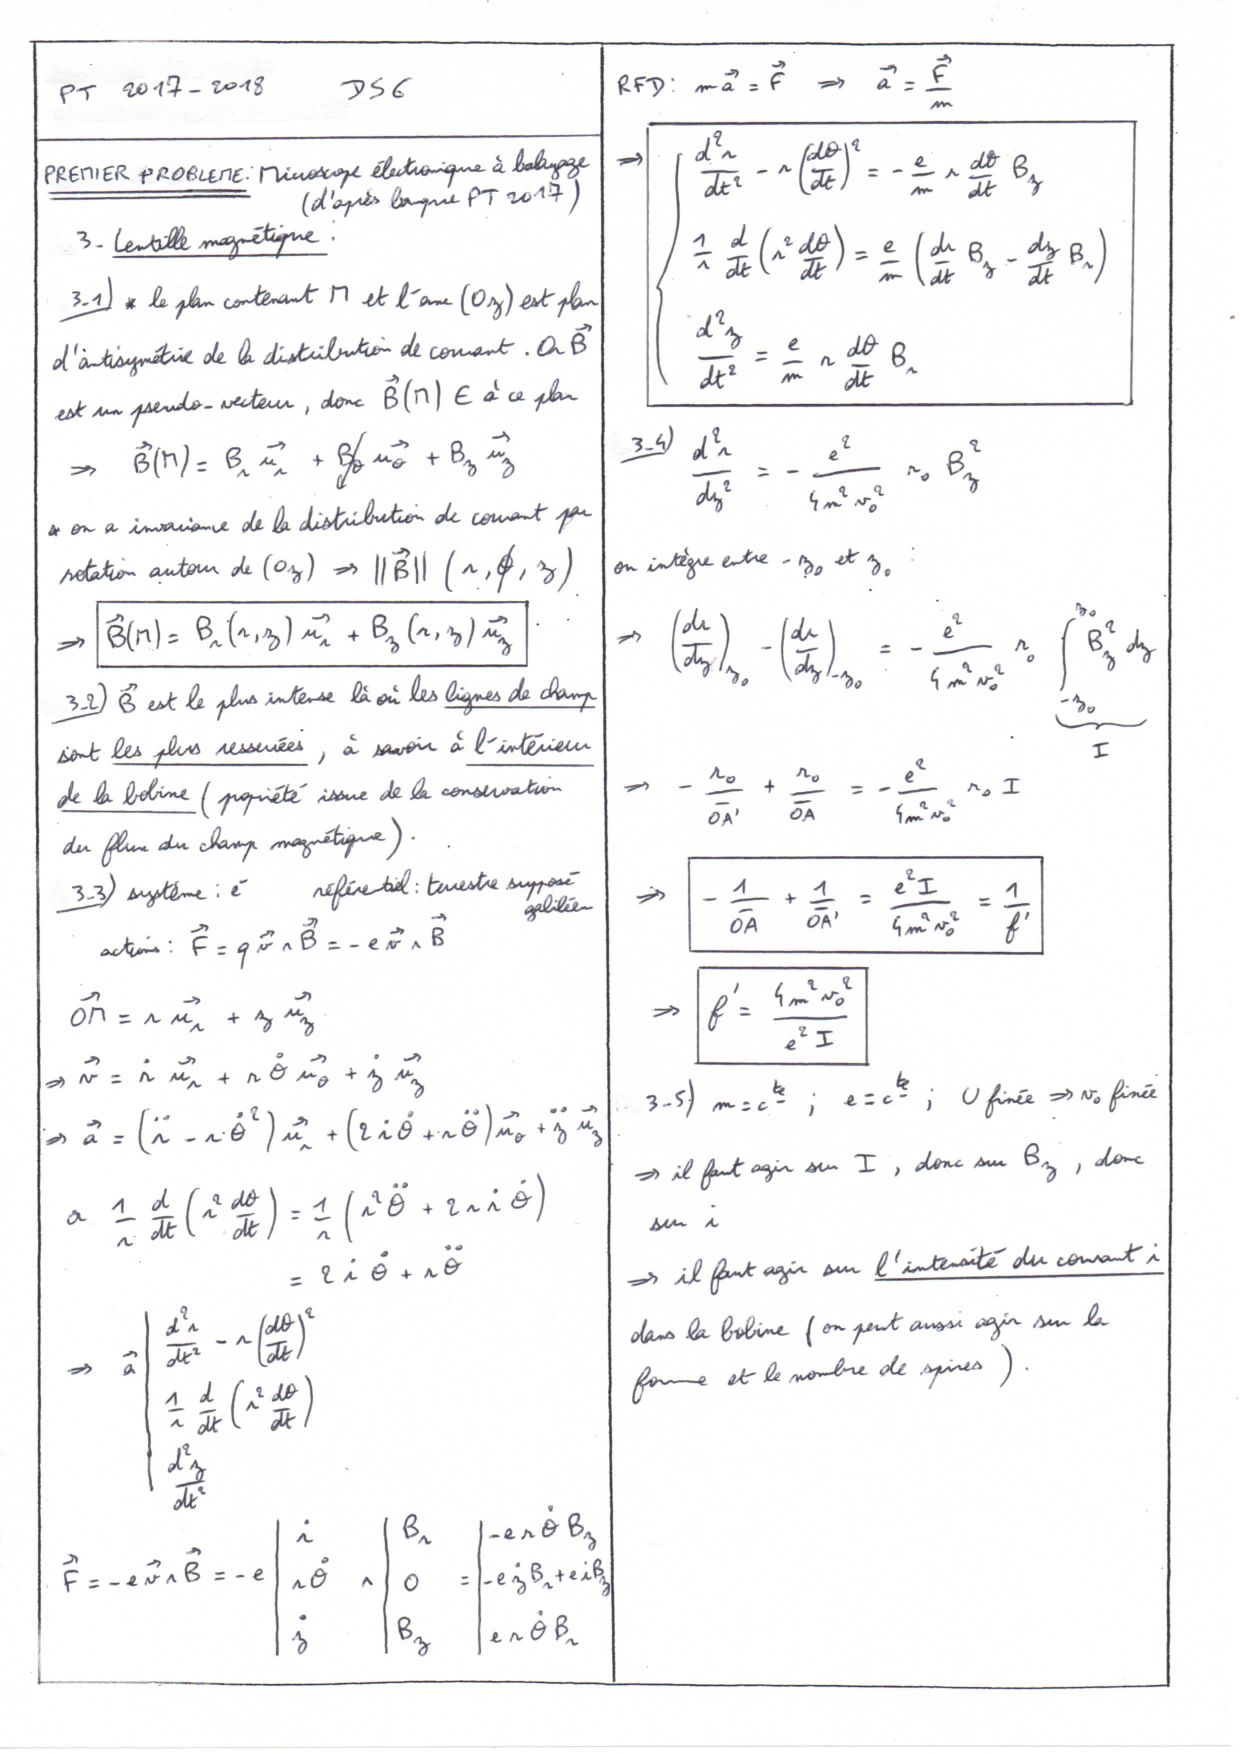 PT 2017-2018 DS6
PREMIER PROBLEME: Microscope électronique à balayage
(d'après banque PT 2017)
3- Lentille magnétique :
3-1) * le plan contenant M et l'axe (Oz) est plan
d'antisymétrie de la distribution de courant. Or B⃗
est un pseudo-vecteur, donc B⃗(M) ∈ à ce plan
⇒ B⃗(M) = B_r u⃗_r + B̸_θ u⃗_θ + B_z u⃗_z
* on a invariance de la distribution de courant par
rotation autour de (Oz) ⇒ ||B⃗|| (r, θ̸, z)
⇒ B⃗(M) = B_r(r,z) u⃗_r + B_z(r,z) u⃗_z
3-2) B⃗ est le plus intense là où les lignes de champ
sont les plus resserrées, à savoir à l'intérieur
de la bobine (propriété issue de la conservation
du flux du champ magnétique).
3-3) système : e⁻ référentiel : terrestre supposé
galiléen
actions : F⃗ = q v⃗ ∧ B⃗ = -e v⃗ ∧ B⃗
OM⃗ = r u⃗_r + z u⃗_z
⇒ v⃗ = ṙ u⃗_r + r θ̇ u⃗_θ + ż u⃗_z
⇒ a⃗ = (r̈ - r θ̇²) u⃗_r + (2 ṙ θ̇ + r θ̈) u⃗_θ + z̈ u⃗_z
or 1/r d/dt (r² dθ/dt) = 1/r (r² θ̈ + 2 r ṙ θ̇)
= 2 ṙ θ̇ + r θ̈
⇒ a⃗ | d²r/dt² - r (dθ/dt)²
| 1/r d/dt (r² dθ/dt)
| d²z/dt²
F⃗ = -e v⃗ ∧ B⃗ = -e | ṙ ∧ | B_r = | -e r θ̇ B_z
| r θ̇ | 0 | -e ż B_r + e ṙ B_z
| ż | B_z | e r θ̇ B_r
RFD : m a⃗ = F⃗ ⇒ a⃗ = F⃗/m
⇒ { d²r/dt² - r (dθ/dt)² = - e/m r dθ/dt B_z
1/r d/dt (r² dθ/dt) = e/m (dr/dt B_z - dz/dt B_r)
d²z/dt² = e/m r dθ/dt B_r
3-4) d²r/dz² = - e²/(4m²v₀²) r₀ B_z²
on intègre entre -z₀ et z₀ :
⇒ (dr/dz)_z₀ - (dr/dz)_-z₀ = - e²/(4m²v₀²) r₀ ∫_-z₀^z₀ B_z² dz
I
⇒ - r₀/OA' + r₀/OA = - e²/(4m²v₀²) r₀ I
⇒ - 1/OA + 1/OA' = e²I/(4m²v₀²) = 1/f'
⇒ f' = 4m²v₀²/(e² I)
3-5) m = c^te ; e = c^te ; U fixée ⇒ v₀ fixée
⇒ il faut agir sur I, donc sur B_z, donc
sur i
⇒ il faut agir sur l'intensité du courant i
dans la bobine (on peut aussi agir sur la
forme et le nombre de spires).